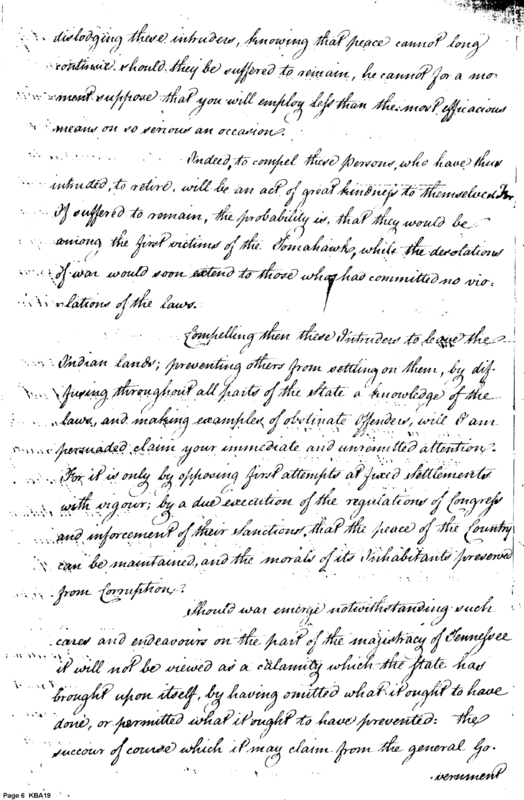 dislodging these intruders, knowing that peace cannot long
continue should they be suffered to remain, he cannot for a mo-
ment suppose that you will employ less than the most efficacious
means on so serious an occasion.
Indeed, to compel these Persons, who have thus
intruded, to retire, will be an act of great kindness to themselves. For
If suffered to remain, the probability is, that they would be
among the first victims of the Tomahawk, while the desolations
of war would soon extend to those who had committed no vio-
lations of the laws.
Compelling then these Intruders to leave the
Indian lands; preventing others from settling on them, by dif-
fusing throughout all parts of the State a knowledge of the
laws, and making examples of obstinate Offenders, will I am
persuaded claim your immediate and unremitted attention.
For it is only by opposing first attempts at fixed settlements
with vigour; by a due execution of the regulations of Congress
and inforcement of their Sanctions, that the peace of the Country
can be maintained, and the morals of its Inhabitants preserved
from Corruption.
Should war emerge notwithstanding such
cares and endeavours on the part of the magistracy of Tennessee
it will not be viewed as a calamity which the State has
brought upon itself, by having omitted what it ought to have
done, or permitted what it ought to have prevented: the
succour of course which it may claim from the general Go-
vernment
Page 6 KBA19